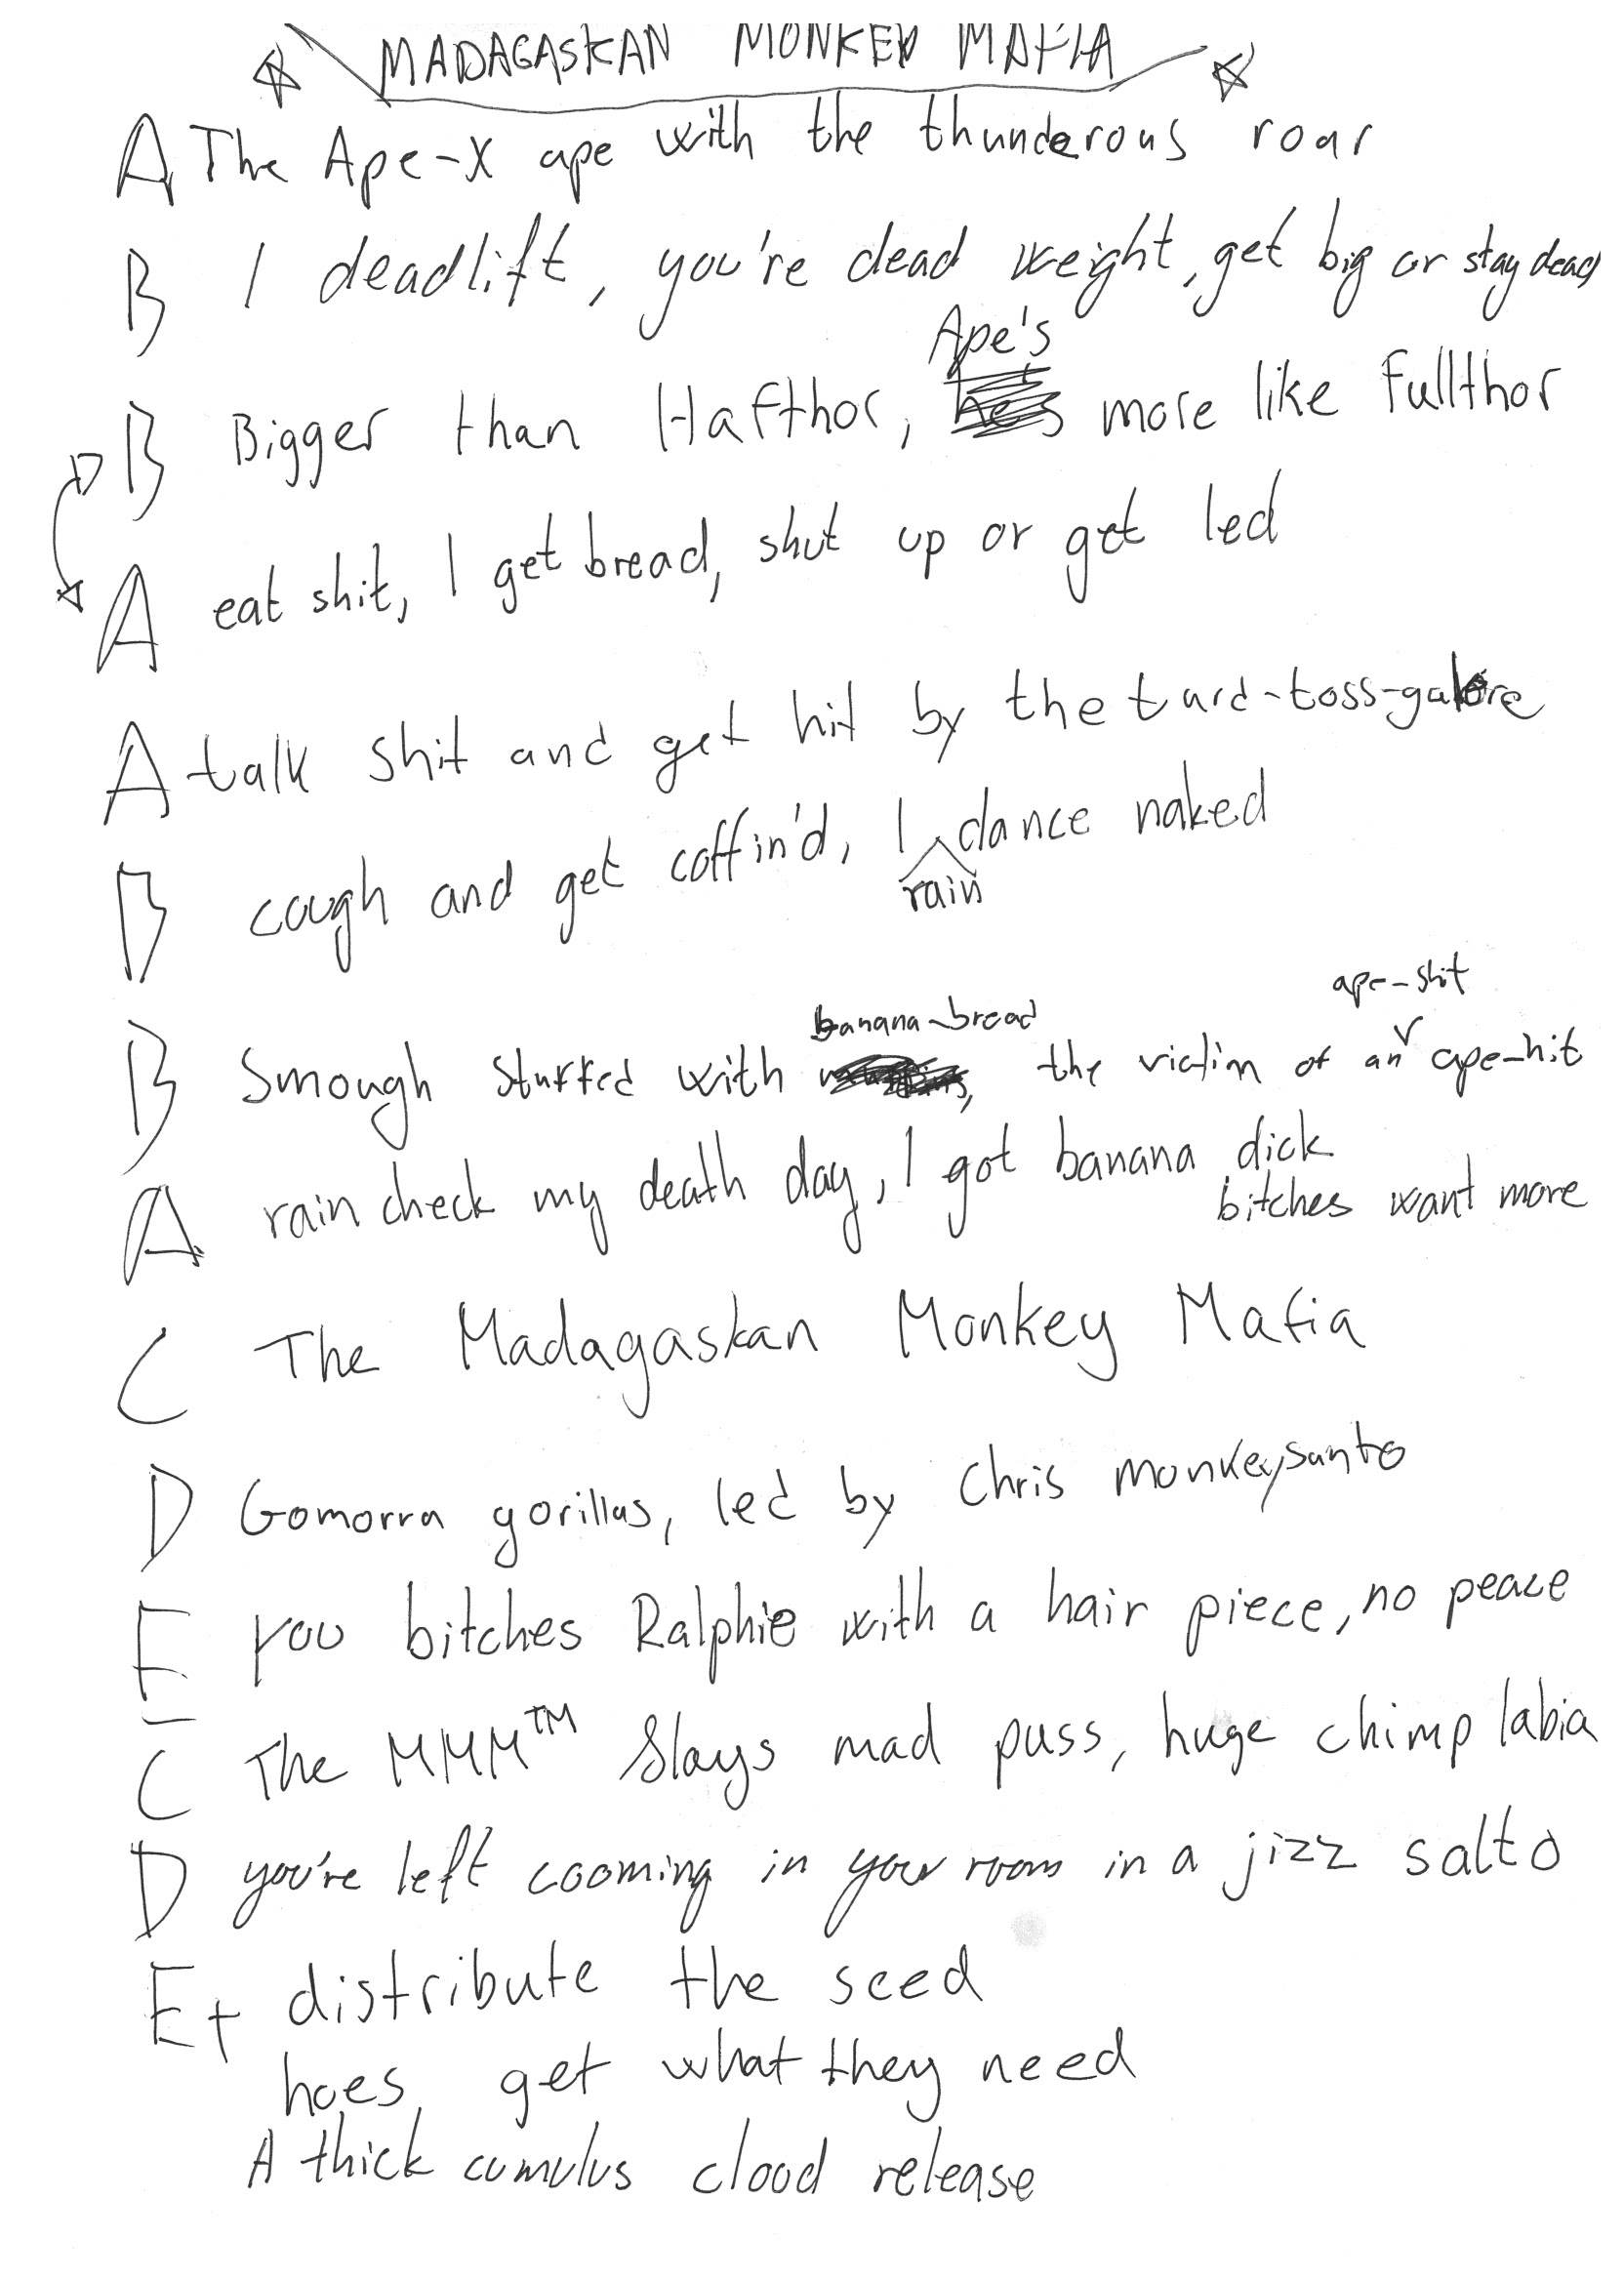 MADAGASKAN MONKEY MAFIA
A The Ape-X ape with the thunderous roar
B I deadlift, you're dead weight, get big or stay dead
Ape's
B Bigger than Hafthor, he's more like Fullthor
A eat shit, I get bread, shut up or get led
A talk shit and get hit by the turd-toss-galore
B cough and get coffin'd, I dance naked
rain
ape-shit
banana-bread
B Smough stuffed with the victim of an ape-hit
A rain check my death day, I got banana dick
bitches want more
C The Madagaskan Monkey Mafia
D Gomorra gorillas, led by Chris monkeysanto
E you bitches Ralphie with a hair piece, no peace
C The MMM™ Slays mad puss, huge chimp labia
D you're left cooming in your room in a jizz salto
E+ distribute the seed
hoes get what they need
A thick cumulus cloud release